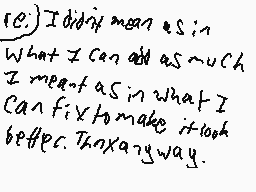 re:) I didn't mean as in
what I can add as much
I meant as in what I
can fix to make it look
better. Thnx anyway.